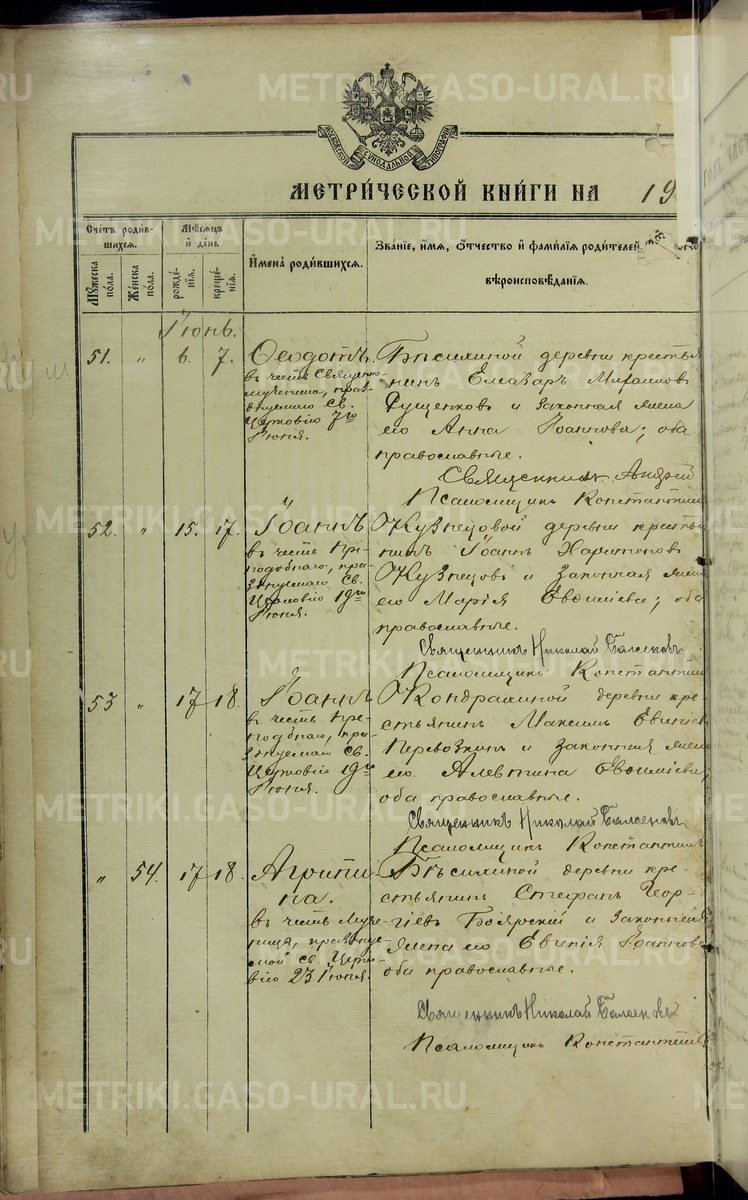 МОСКОВСКОЙ СѴНОДАЛЬНОЙ ТИПОГРАФІИ
МЕТРИ́ЧЕСКОЙ КНИ́ГИ НА 19
Сче́тъ роди́в-
шихся.
Мѣ́сяцъ
и҆ де́нь
Мꙋ́жеска
по́ла.
Же́нска
по́ла.
рожде́-
нїя.
креще́-
нїя.
И҆мена̀ роди́вшихся.
Зва́нїе, и҆́мя, ѻ҆́тчество и҆ фами́лїя роди́телей,
вѣроисповѣ́данїя.
Іюнь.
51. " 6. 7. Ѳеодотъ
въ честь священно-
мученика, празд-
нуемаго Св.
Церковію 7го
Іюня.
деревни крестья
нинъ Елеазаръ
и законная жена
его Анна Іоаннова; оба
православные.
Священникъ Андрей
Псаломщикъ Константин
52. " 15. 17. Іоаннъ
въ честь Пре-
подобнаго, пра-
зднуемаго Св.
Церковію 19го
Іюня.
Кузнецовой деревни крестья
нинъ Іоаннъ Харитоновъ
Кузнецовъ и законная жена
его Марія Евѳиміева; оба
православные.
Священникъ Николай
Псаломщикъ Константин
53 " 17 18. Іоаннъ
въ честь Пре-
подобнаго, пра-
зднуемаго Св.
Церковію 19го
Іюня.
Кондрашиной деревни кре-
стьянинъ Максимъ
Перевозкинъ и законная жена
его Алевтина Евѳиміева;
оба православные.
Священникъ Николай
Псаломщикъ Константин
" 54. 17 18. Агрипи-
на.
въ честь Муче-
ницы, празднуе-
мой св. Церко-
вію 23 Іюня.
деревни кре-
стьянинъ Стефанъ Геор-
гіевъ Боярскій и законная
жена его Евгенія Іоаннова
оба православные.
Священникъ Николай
Псаломщикъ Константин
METRIKI.GASO-URAL.RU